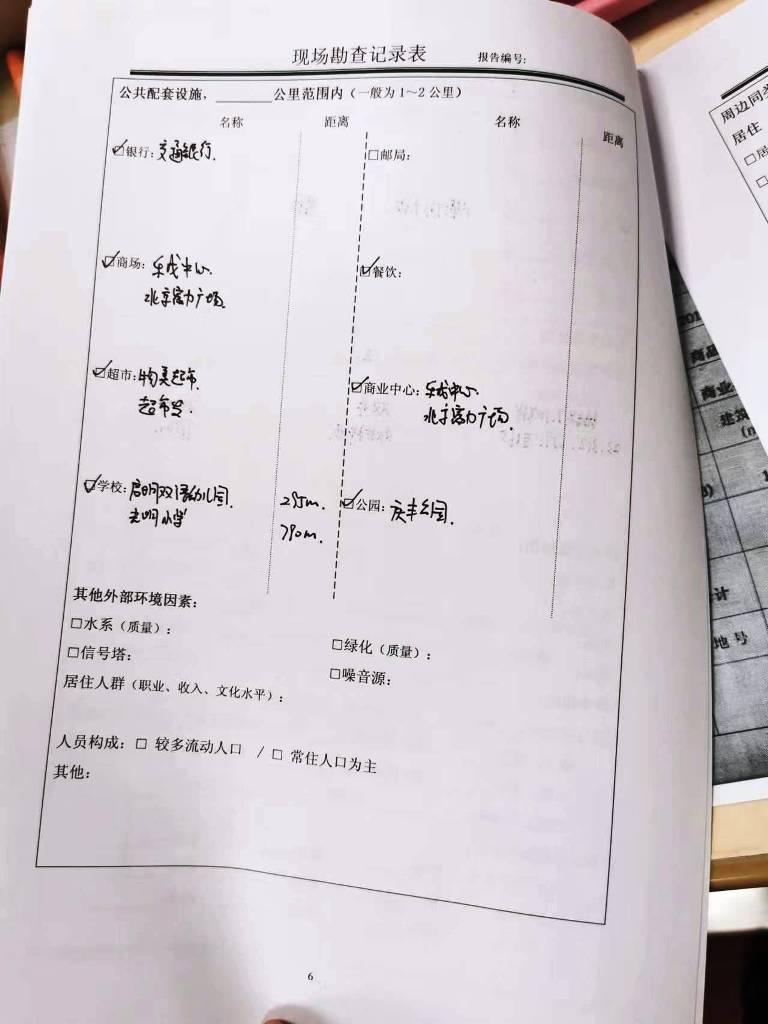 现场勘查记录表 报告编号:
公共配套设施，______公里范围内（一般为1～2公里）
名称 距离 名称 距离
☑银行: 交通银行. □邮局:
☑商场: 乐成中心. ☑餐饮:
北京富力广场.
☑超市: 物美超市. ☑商业中心: 乐成中心.
超市发. 北京富力广场.
☑学校: 启明双语幼儿园. 295m. ☑公园: 庆丰公园.
光明小学 790m.
其他外部环境因素:
□水系（质量）: □绿化（质量）:
□信号塔: □噪音源:
居住人群（职业、收入、文化水平）:
人员构成: □ 较多流动人口 / □ 常住人口为主
其他:
6
周边同类
居住
□居
商业
建筑
地 号